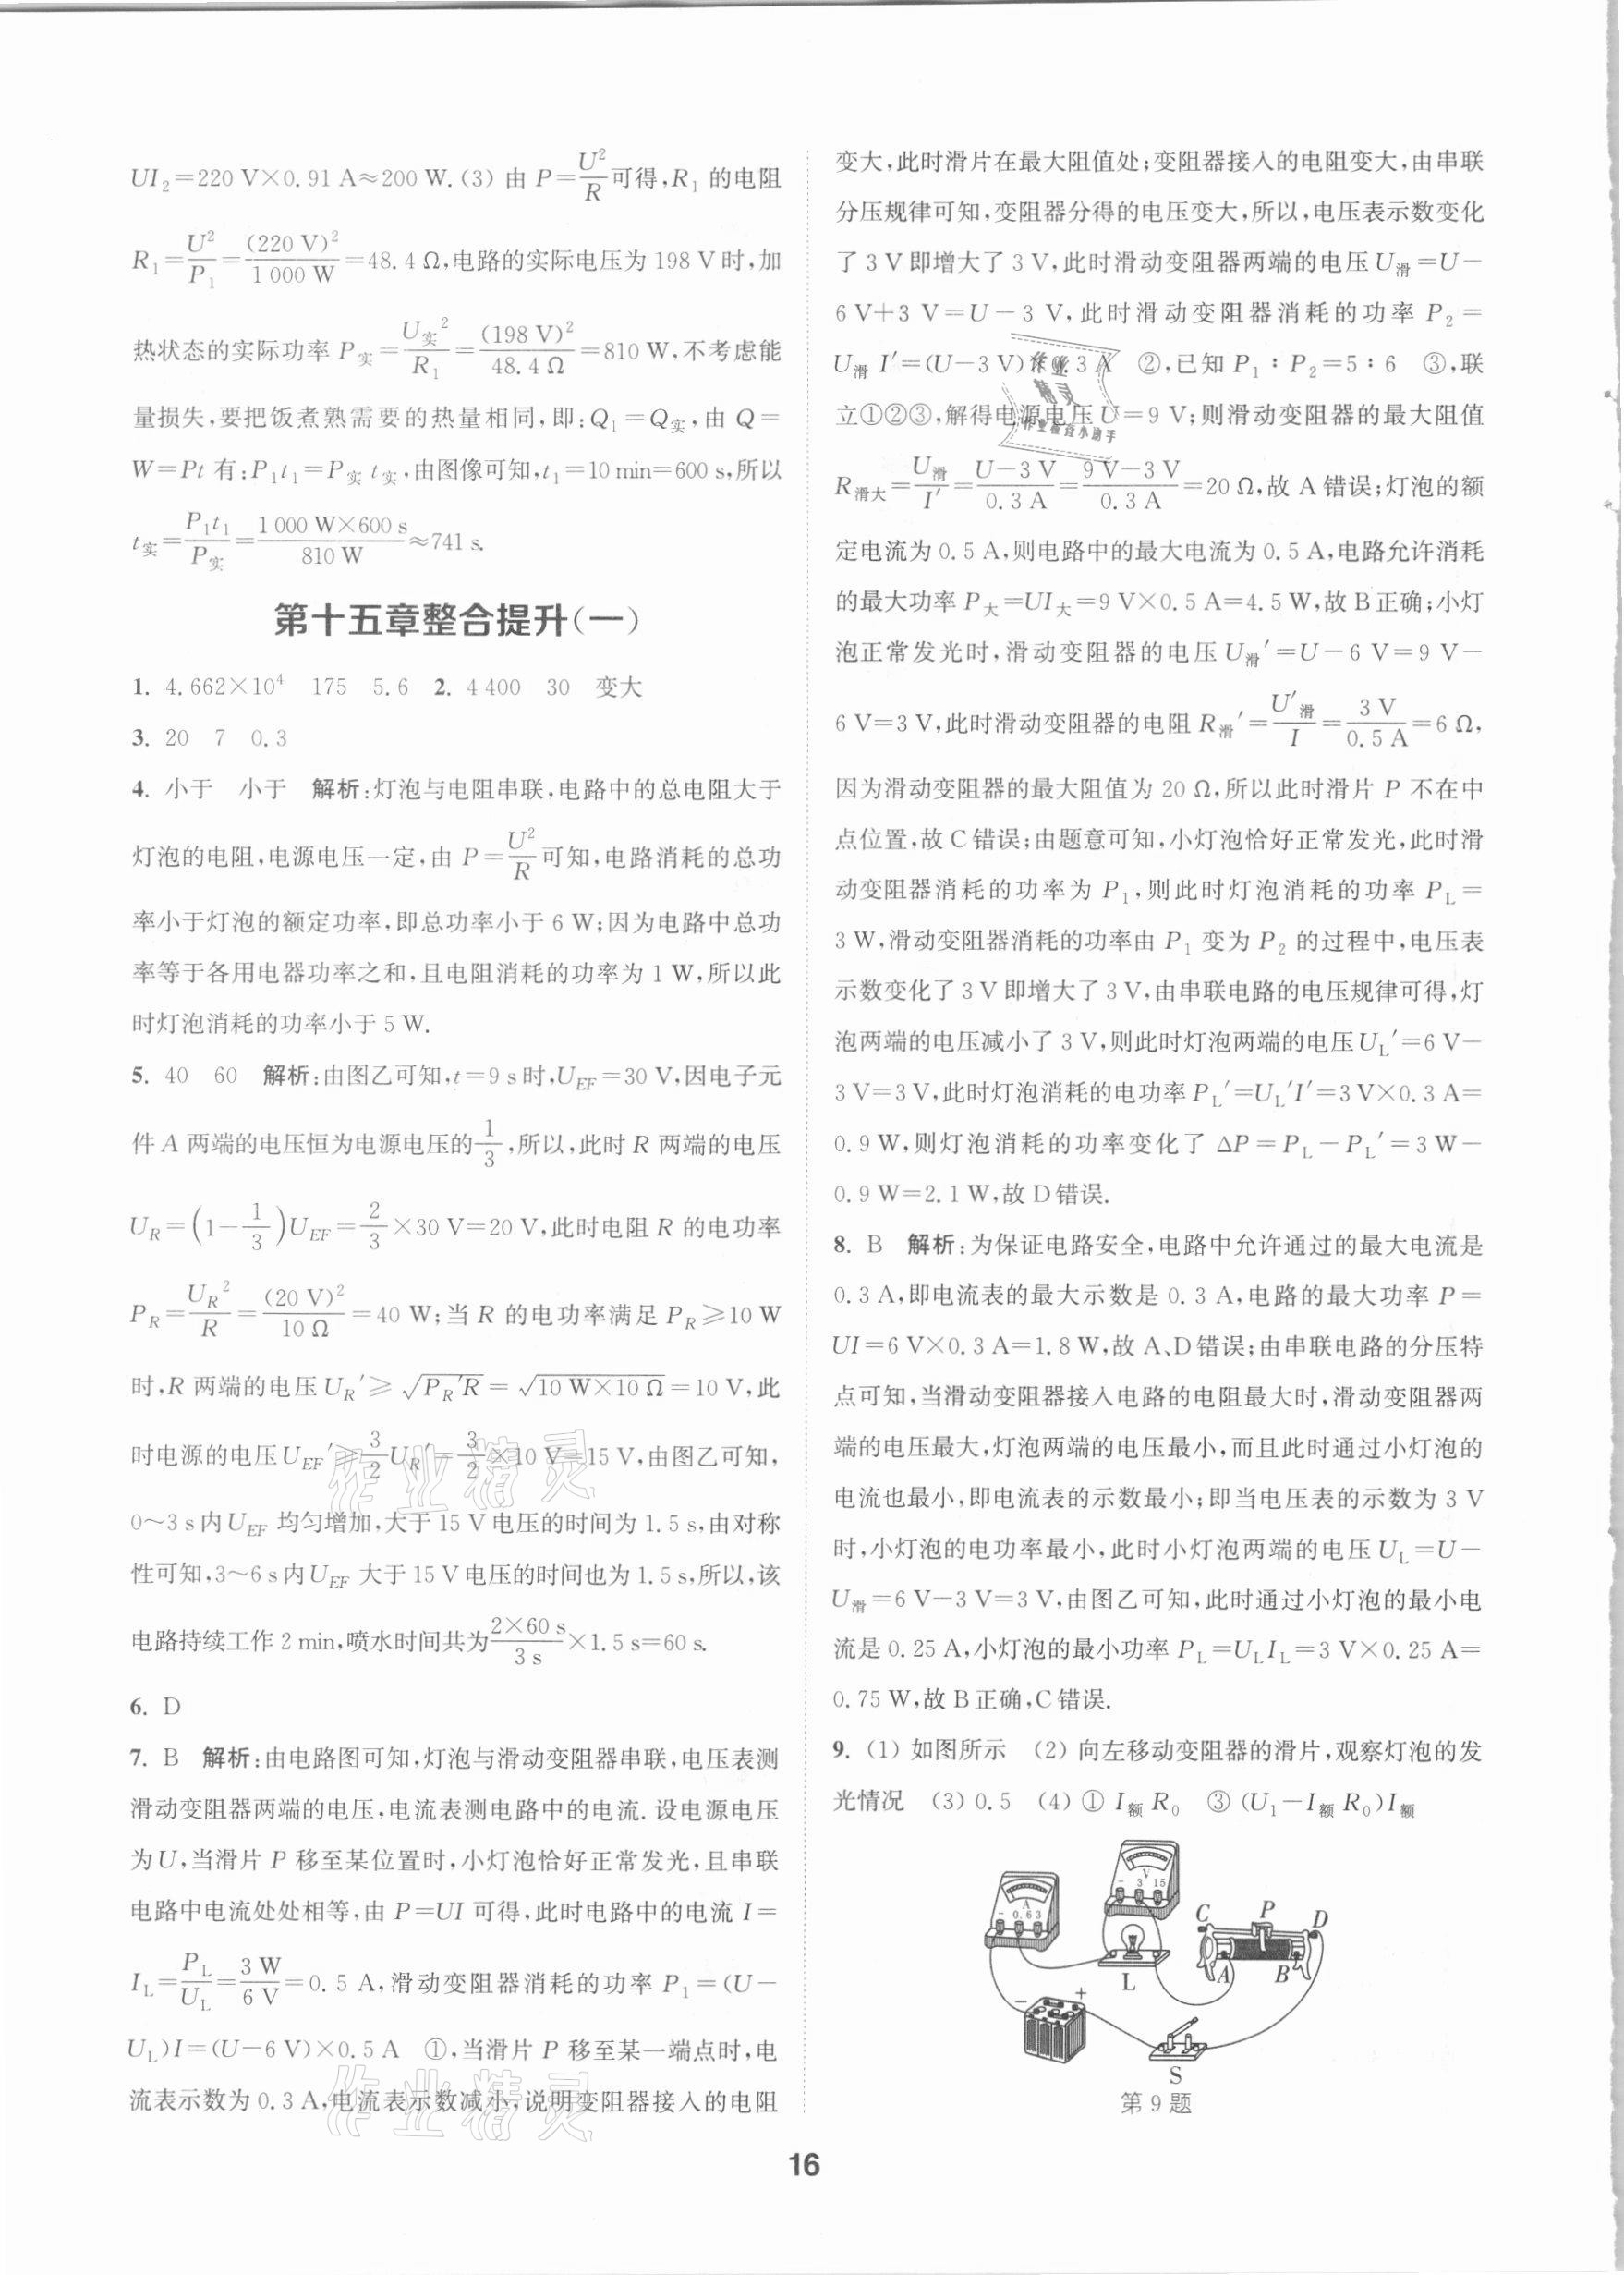 UI₂=220 V×0.91 A≈200 W.(3) 由 P=U²/R可得,R₁ 的电阻
R₁=U²/P₁=(220 V)²/1 000 W=48.4 Ω,电路的实际电压为 198 V 时,加
热状态的实际功率 P实=U实²/R₁=(198 V)²/48.4 Ω=810 W,不考虑能
量损失,要把饭煮熟需要的热量相同,即:Q₁=Q实,由 Q=
W=Pt 有:P₁t₁=P实 t实,由图像可知,t₁=10 min=600 s,所以
t实=P₁t₁/P实=1 000 W×600 s/810 W≈741 s.
第十五章整合提升(一)
1. 4.662×10⁴ 175 5.6 2. 4 400 30 变大
3. 20 7 0.3
4. 小于 小于 解析:灯泡与电阻串联,电路中的总电阻大于
灯泡的电阻,电源电压一定,由 P=U²/R可知,电路消耗的总功
率小于灯泡的额定功率,即总功率小于 6 W;因为电路中总功
率等于各用电器功率之和,且电阻消耗的功率为 1 W,所以此
时灯泡消耗的功率小于 5 W.
5. 40 60 解析:由图乙可知,t=9 s 时,U_EF=30 V,因电子元
件 A 两端的电压恒为电源电压的1/3,所以,此时 R 两端的电压
U_R=(1-1/3)U_EF=2/3×30 V=20 V,此时电阻 R 的电功率
P_R=U_R²/R=(20 V)²/10 Ω=40 W;当 R 的电功率满足 P_R≥10 W
时,R 两端的电压 U_R′≥√(P_R′R)=√(10 W×10 Ω)=10 V,此
时电源的电压 U_EF′≥3/2U_R′=3/2×10 V=15 V,由图乙可知,
0~3 s 内 U_EF 均匀增加,大于 15 V 电压的时间为 1.5 s,由对称
性可知,3~6 s 内 U_EF 大于 15 V 电压的时间也为 1.5 s,所以,该
电路持续工作 2 min,喷水时间共为2×60 s/3 s×1.5 s=60 s.
6. D
7. B 解析:由电路图可知,灯泡与滑动变阻器串联,电压表测
滑动变阻器两端的电压,电流表测电路中的电流. 设电源电压
为 U,当滑片 P 移至某位置时,小灯泡恰好正常发光,且串联
电路中电流处处相等,由 P=UI 可得,此时电路中的电流 I=
I_L=P_L/U_L=3 W/6 V=0.5 A,滑动变阻器消耗的功率 P₁=(U-
U_L)I=(U-6 V)×0.5 A ①,当滑片 P 移至某一端点时,电
流表示数为 0.3 A,电流表示数减小,说明变阻器接入的电阻
变大,此时滑片在最大阻值处;变阻器接入的电阻变大,由串联
分压规律可知,变阻器分得的电压变大,所以,电压表示数变化
了 3 V 即增大了 3 V,此时滑动变阻器两端的电压 U滑=U-
6 V+3 V=U-3 V,此时滑动变阻器消耗的功率 P₂=
U滑 I′=(U-3 V)×0.3 A ②,已知 P₁∶P₂=5∶6 ③,联
立①②③,解得电源电压 U=9 V;则滑动变阻器的最大阻值
R滑大=U滑/I′=U-3 V/0.3 A=9 V-3 V/0.3 A=20 Ω,故 A 错误;灯泡的额
定电流为 0.5 A,则电路中的最大电流为 0.5 A,电路允许消耗
的最大功率 P大=UI大=9 V×0.5 A=4.5 W,故 B 正确;小灯
泡正常发光时,滑动变阻器的电压 U滑′=U-6 V=9 V-
6 V=3 V,此时滑动变阻器的电阻 R滑′=U′滑/I=3 V/0.5 A=6 Ω,
因为滑动变阻器的最大阻值为 20 Ω,所以此时滑片 P 不在中
点位置,故 C 错误;由题意可知,小灯泡恰好正常发光,此时滑
动变阻器消耗的功率为 P₁,则此时灯泡消耗的功率 P_L=
3 W,滑动变阻器消耗的功率由 P₁ 变为 P₂ 的过程中,电压表
示数变化了 3 V 即增大了 3 V,由串联电路的电压规律可得,灯
泡两端的电压减小了 3 V,则此时灯泡两端的电压 U_L′=6 V-
3 V=3 V,此时灯泡消耗的电功率 P_L′=U_L′I′=3 V×0.3 A=
0.9 W,则灯泡消耗的功率变化了 ΔP=P_L-P_L′=3 W-
0.9 W=2.1 W,故 D 错误.
8. B 解析:为保证电路安全,电路中允许通过的最大电流是
0.3 A,即电流表的最大示数是 0.3 A,电路的最大功率 P=
UI=6 V×0.3 A=1.8 W,故 A、D 错误;由串联电路的分压特
点可知,当滑动变阻器接入电路的电阻最大时,滑动变阻器两
端的电压最大,灯泡两端的电压最小,而且此时通过小灯泡的
电流也最小,即电流表的示数最小;即当电压表的示数为 3 V
时,小灯泡的电功率最小,此时小灯泡两端的电压 U_L=U-
U滑=6 V-3 V=3 V,由图乙可知,此时通过小灯泡的最小电
流是 0.25 A,小灯泡的最小功率 P_L=U_LI_L=3 V×0.25 A=
0.75 W,故 B 正确,C 错误.
9. (1) 如图所示 (2) 向左移动变阻器的滑片,观察灯泡的发
光情况 (3) 0.5 (4) ① I额 R₀ ③ (U₁-I额 R₀)I额
V
- 3 15
A
- 0.6 3
C P D
A B
L
- +
S
第 9 题
16
作业精灵
作业精灵
作业
精灵
作业检查小助手